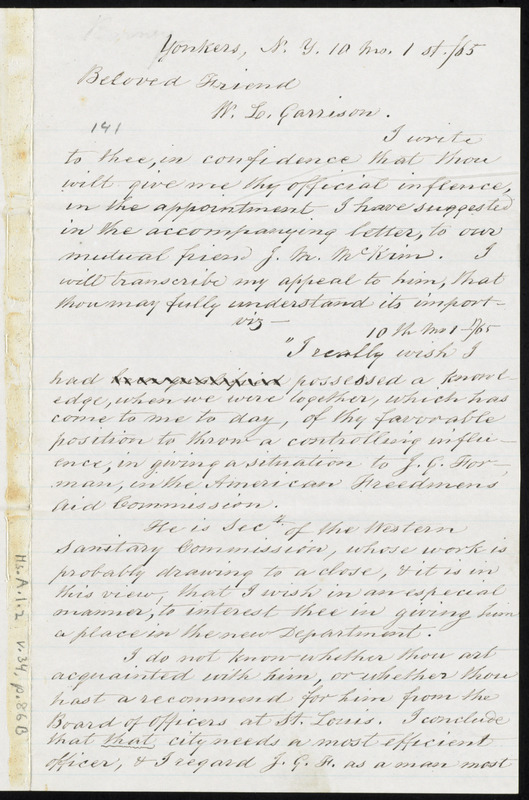 Yonkers, N. Y. 10 mo. 1 st. /65
Beloved Friend
W. L. Garrison.
141
I write
to thee, in confidence that thou
wilt give me thy official inflence,
in the appointment I have suggested
in the accompanying letter, to our
mutual friend J. M. McKim. I
will transcribe my appeal to him, that
thou may fully understand its import-
viz -
10 th mo 1 - /65
"I really wish I
had possessed a knowl-
edge, when we were together, which has
come to me to day, of thy favorable
position to throw a controlling influ-
ence, in giving a situation to J. G. For-
man, in the American Freedmens
Aid Commission.
He is Secty. of the Western
Sanitary Commission, whose work is
probably drawing to a close, & it is in
this view, that I wish in an especial
manner, to interest thee in giving him
a place in the new Department.
I do not know whether thou art
acquainted with him, or whether thou
hast a recommend for him from the
Board of Officers at St. Louis. I conclude
that that city needs a most efficient
officer, & I regard J. G. F. as a man most
Ms. A. 1. 2 v. 34, p. 86B